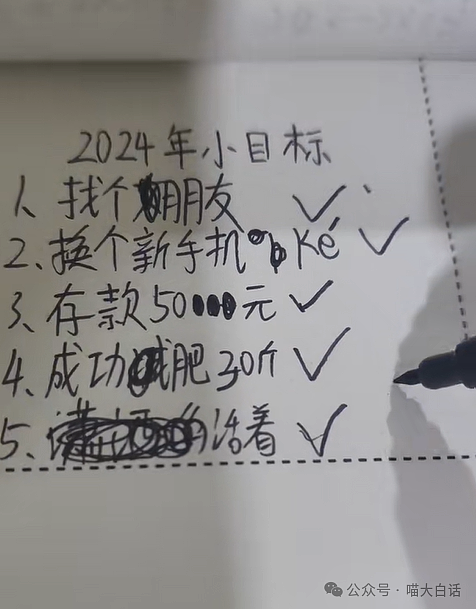 2024年小目标
1、找个朋友 ✓
2、换个新手机ké ✓
3、存款50元 ✓
4、成功肥30斤 ✓
5、的活着 ✓
公众号·喵大白话